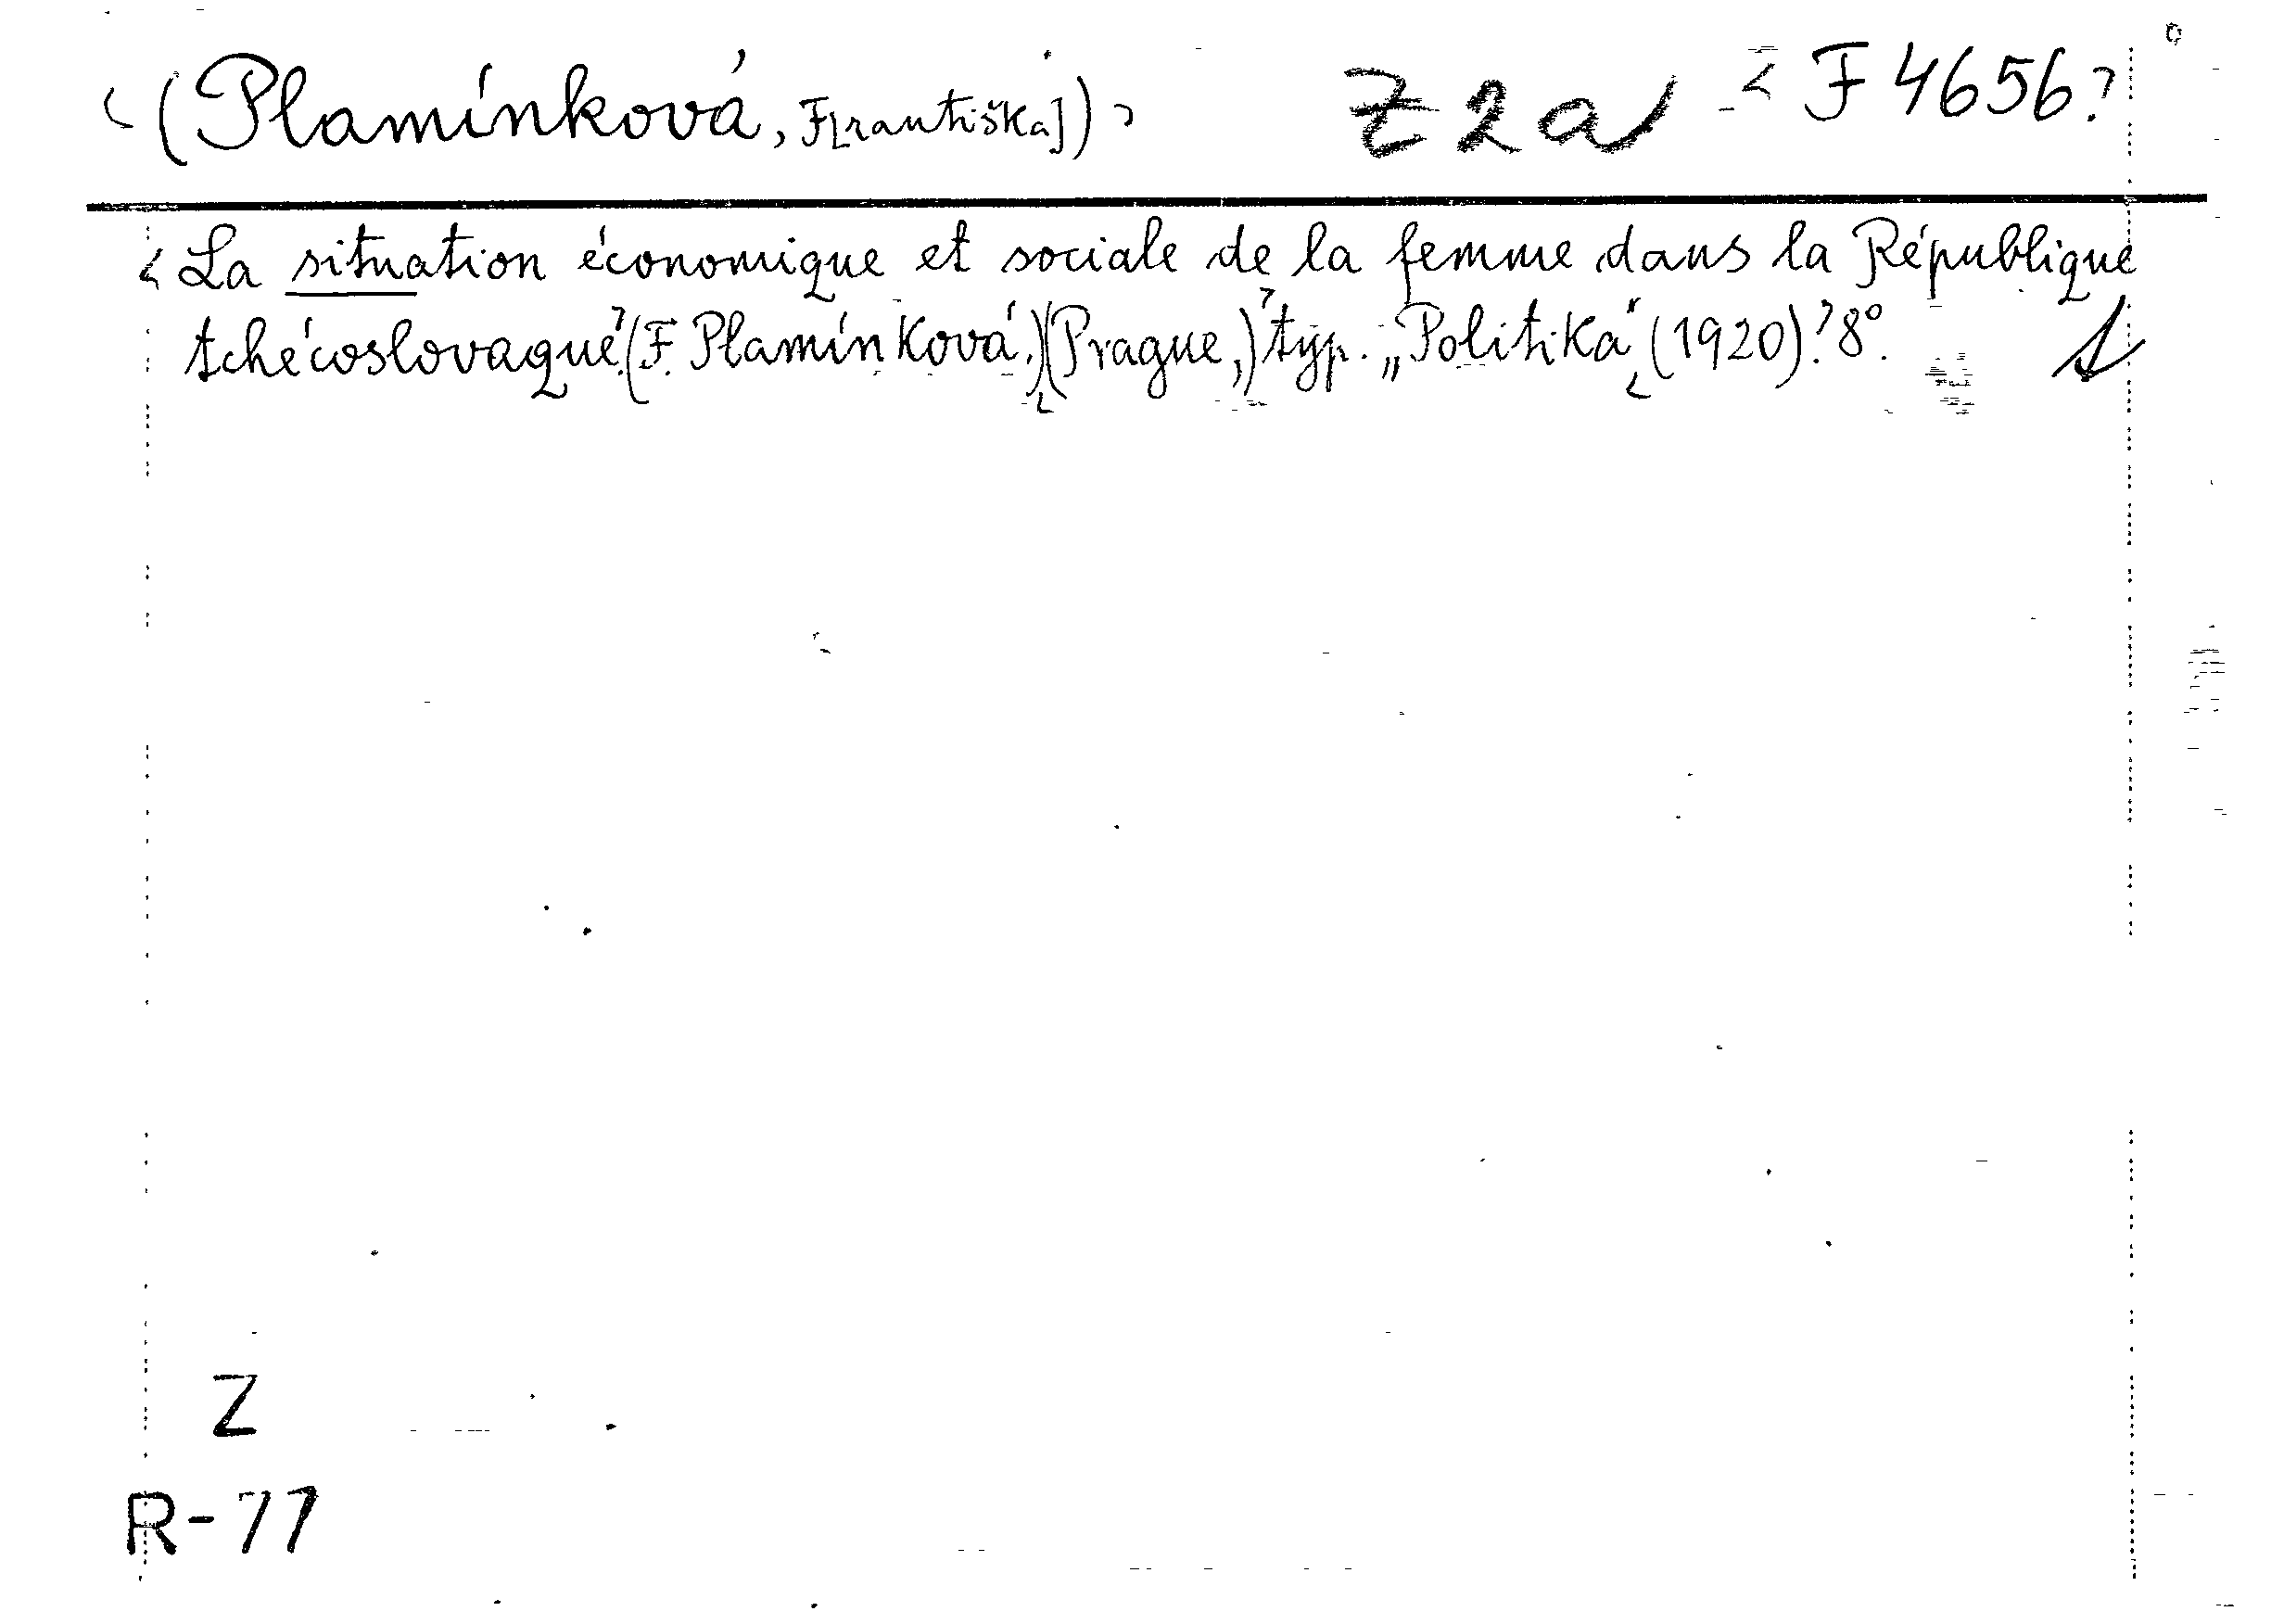 (Plamínková, F[rantiška]) Z 2 a F 4656
La situation économique et sociale de la femme dans la République
tchécoslovaque. (F. Plamínková.) (Prague,) typ. „Politika“ (1920). 8°. 1
Z
R-77